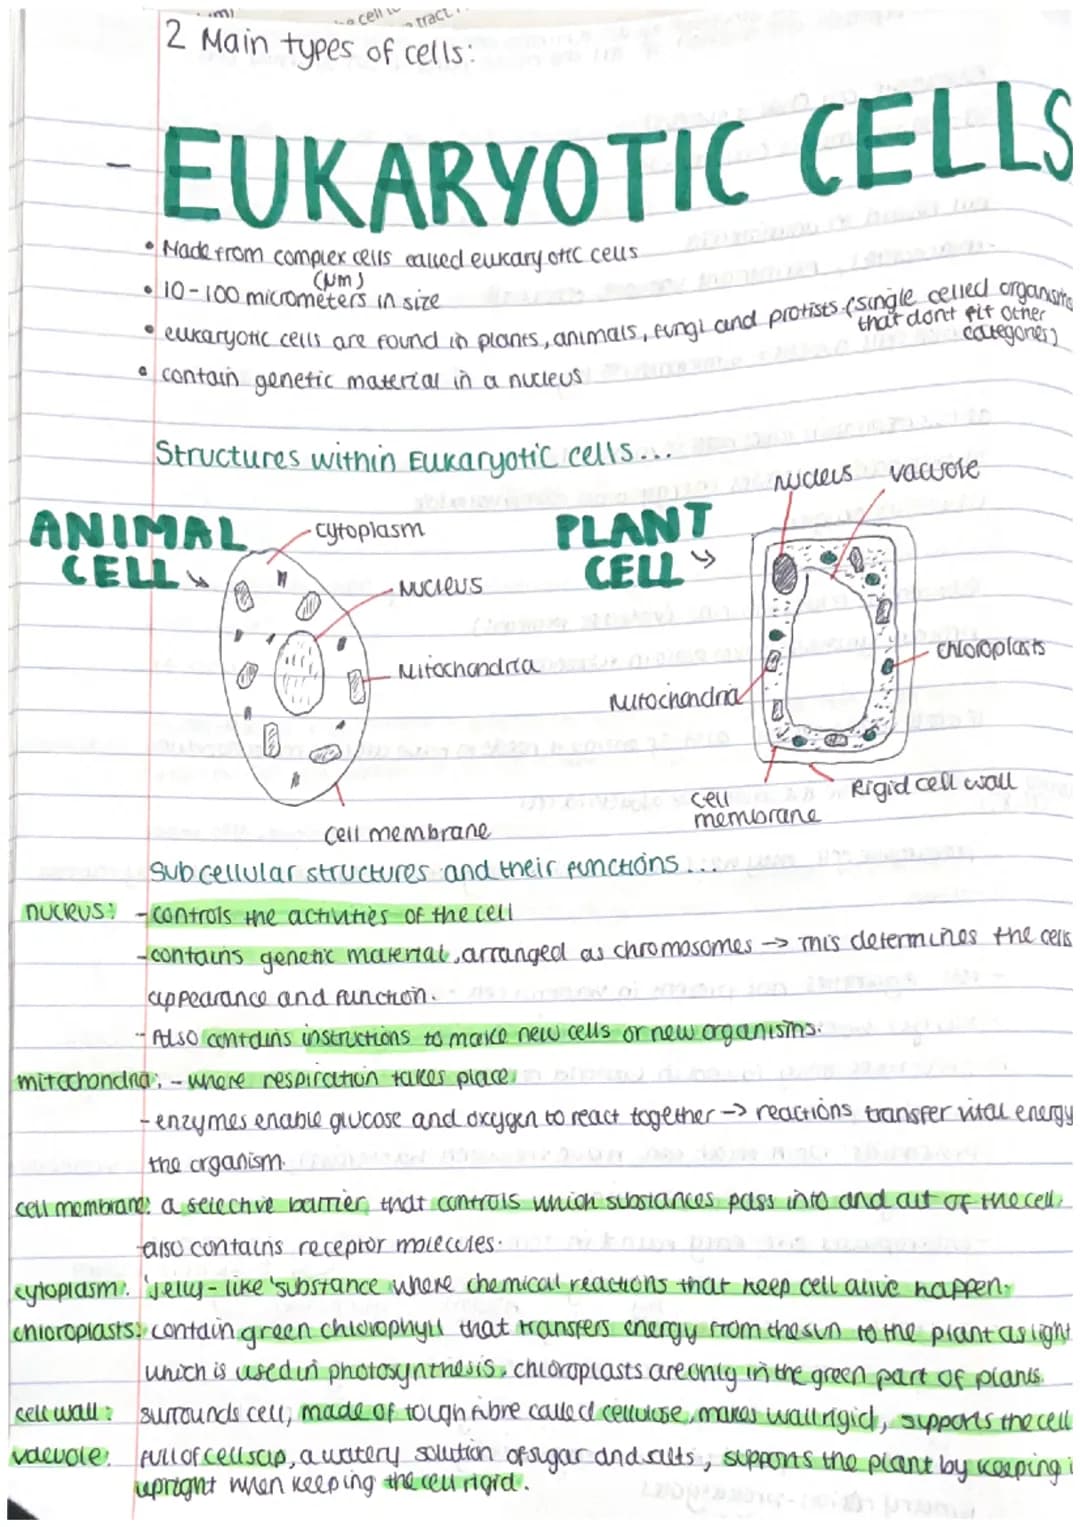 cell
tract
2 Main types of cells:
- EUKARYOTIC CELLS
• Made from complex cells called eukaryotic cells
(µm)
• 10-100 micrometers in size
• eukaryotic cells are found in plants, animals, fungi and protists (single celled organisms
that dont fit other
categories)
• contain genetic material in a nucleus
Structures within Eukaryotic cells...
nucleus vacuole
ANIMAL
CELL
cytoplasm
PLANT
CELL
Nucleus
Mitochondria
chloroplasts
mitochondria
Rigid cell wall
cell
membrane
cell membrane
Subcellular structures and their functions...
nucleus: - controls the activities of the cell
- contains genetic material, arranged as chromosomes -> This determines the cells
appearance and function.
- Also contains instructions to make new cells or new organisms.
mitochondria: - where respiration takes place
- enzymes enable glucose and oxygen to react together -> reactions transfer vital energy
the organism.
cell membrane: a selective barrier that controls which substances pass into and out of the cell.
also contains receptor molecules.
cytoplasm: 'Jelly-like' substance where chemical reactions that keep cell alive happen.
chloroplasts: contain green chlorophyll that transfers energy from the sun to the plant as light
which is used in photosynthesis. chloroplasts are only in the green part of plants.
cell wall: surrounds cell, made of tough fibre called cellulose, makes wall rigid, supports the cell
vacuole: full of cell sap, a watery solution of sugar and salts, supports the plant by keeping
upright when keeping the cell rigid.